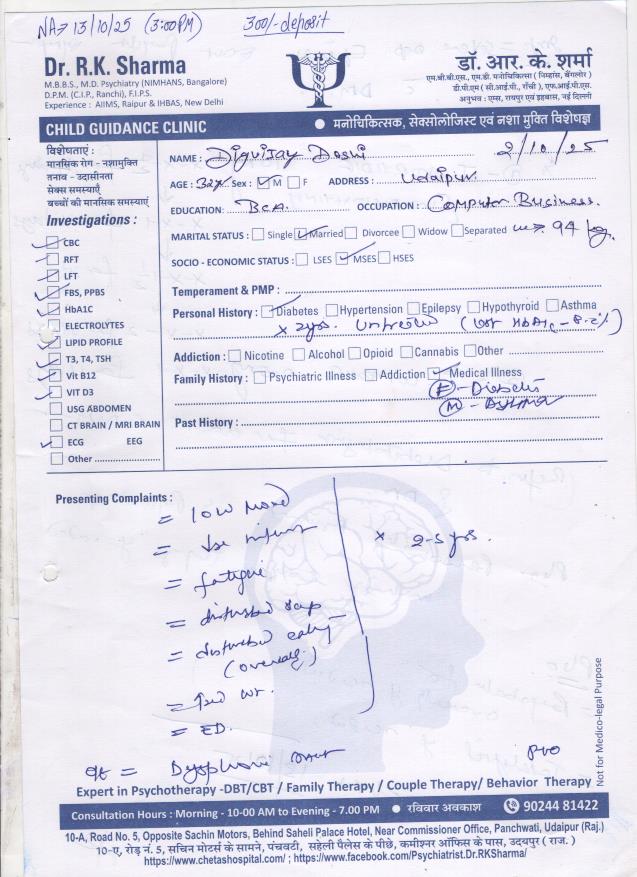 NA→ 13/10/25 (3:00PM) 300/- deposit
Dr. R.K. Sharma
M.B.B.S., M.D. Psychiatry (NIMHANS, Bangalore)
D.P.M. (C.I.P., Ranchi), F.I.P.S.
Experience : AIIMS, Raipur & IHBAS, New Delhi
डॉ. आर. के. शर्मा
एम.बी.बी.एस., एम.डी. मनोचिकित्सा ( निम्हांस, बैंगलोर )
डी.पी.एम (सी.आई.पी., राँची), एफ.आई.पी.एस.
अनुभव : एम्स, रायपुर एवं इहबास, नई दिल्ली
CHILD GUIDANCE CLINIC
● मनोचिकित्सक, सेक्सोलोजिस्ट एवं नशा मुक्ति विशेषज्ञ
विशेषताएं :
मानसिक रोग - नशामुक्ती
तनाव - उदासीनता
सेक्स समस्याएँ
बच्चों की मानसिक समस्याएं
Investigations :
CBC
RFT
LFT
FBS, PPBS
HbA1C
ELECTROLYTES
LIPID PROFILE
T3, T4, TSH
Vit B12
VIT D3
USG ABDOMEN
CT BRAIN / MRI BRAIN
ECG EEG
Other
NAME : Digvijay Doshi 2/10/25
AGE : 32y Sex : M F ADDRESS : Udaipur
EDUCATION : BCA. OCCUPATION : Computer Business.
MARITAL STATUS : Single Married Divorcee Widow Separated wt→ 94 kg.
SOCIO - ECONOMIC STATUS : LSES MSES HSES
Temperament & PMP :
Personal History : Diabetes Hypertension Epilepsy Hypothyroid Asthma
x 2yrs. Untreated (last HbA1c - 8.2%)
Addiction : Nicotine Alcohol Opioid Cannabis Other
Family History : Psychiatric Illness Addiction Medical Illness
(F) - Diabetis
(M) - Asthma
Past History :
Presenting Complaints :
= low mood
= fatigue
x 2-5 yrs.
= disturbed sleep
= disturbed eating
(overeating)
= ED.
= Dysphoric
PTO
Not for Medico-legal Purpose
Expert in Psychotherapy -DBT/CBT / Family Therapy / Couple Therapy/ Behavior Therapy
Consultation Hours : Morning - 10-00 AM to Evening - 7.00 PM ● रविवार अवकाश 90244 81422
10-A, Road No. 5, Opposite Sachin Motors, Behind Saheli Palace Hotel, Near Commissioner Office, Panchwati, Udaipur (Raj.)
10-ए, रोड़ नं. 5, सचिन मोटर्स के सामने, पंचवटी, सहेली पैलेस के पीछे, कमीश्नर ऑफिस के पास, उदयपुर ( राज. )
https://www.chetashospital.com/ ; https://www.facebook.com/Psychiatrist.Dr.RKSharma/